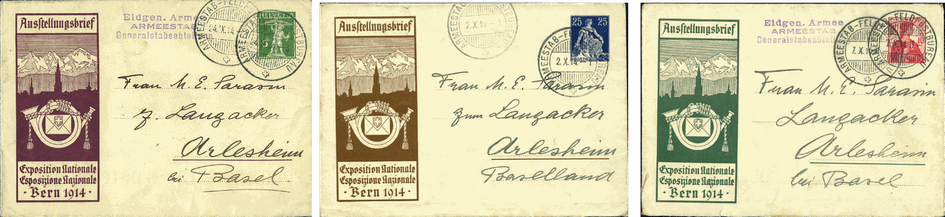 Ausstellungsbrief
Exposition Nationale
Esposizione Nazionale
· Bern 1914 ·
Eidgen. Armee
ARMEESTAB
Generalstabsabteil
ARMEESTAB-FELDPOSTBUREAU
24.X.14
HELVETIA
5
Frau M. E. Sarasin
z. Langacker
Arlesheim
bei Basel
Ausstellungsbrief
Exposition Nationale
Esposizione Nazionale
· Bern 1914 ·
2.X.14
25 25
ARMEESTAB-FELDPOSTBUREAU
2.X.14
Frau M. E. Sarasin
zum Langacker
Arlesheim
Baselland
Ausstellungsbrief
Exposition Nationale
Esposizione Nazionale
· Bern 1914 ·
Eidgen. Armee
ARMEESTAB
Generalstabsabteil
ARMEESTAB-FELDPOSTBUREAU
7.X.14
Frau M. E. Sarasin
Langacker
Arlesheim
bei Basel